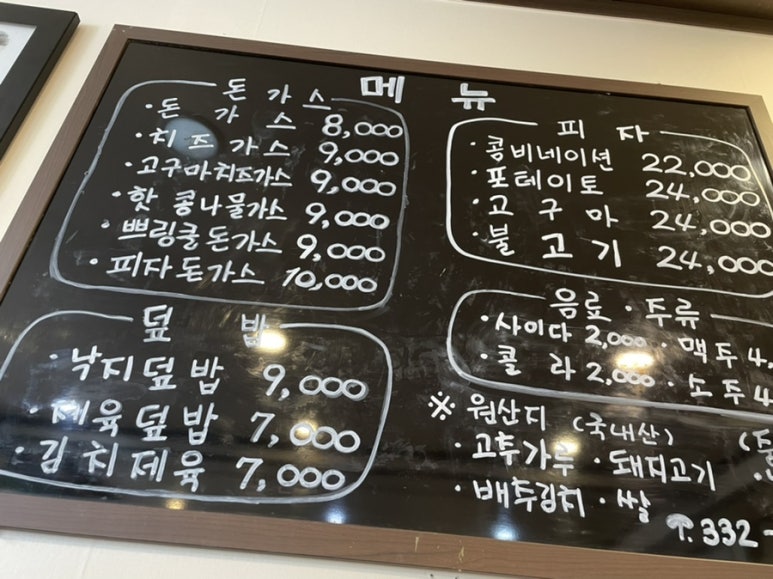 메 뉴
돈 가 스
· 돈 가 스 8,000
· 치 즈 가 스 9,000
· 고구마치즈가스 9,000
· 핫 콩나물가스 9,000
· 쁘링클돈가스 9,000
· 피자돈가스 10,000
덮 밥
· 낙지덮밥 9,000
· 제육덮밥 7,000
· 김치제육 7,000
피 자
· 콤비네이션 22,000
· 포테이토 24,000
· 고 구 마 24,000
· 불 고 기 24,000
음료 · 주류
· 사이다 2,000 · 맥주 4,
· 콜 라 2,000 · 소주 4
※ 원산지 (국내산)
· 고추가루 · 돼지고기
· 배추김치 · 쌀
T. 332-